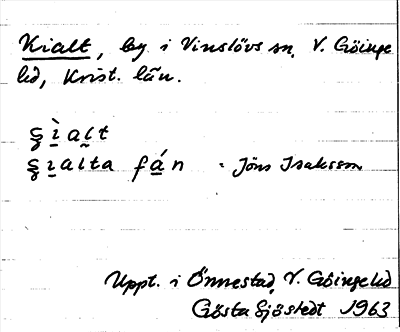 Kialt, by i Vinslövs sn, V. Göinge
hd, Krist. län.
ʂ̧ì̱alt
ʂ̧i̱alta fá̱n - Jöns Isaksson
Uppt. i Önnestad, V. Göinge hd
Gösta Sjöstedt 1963